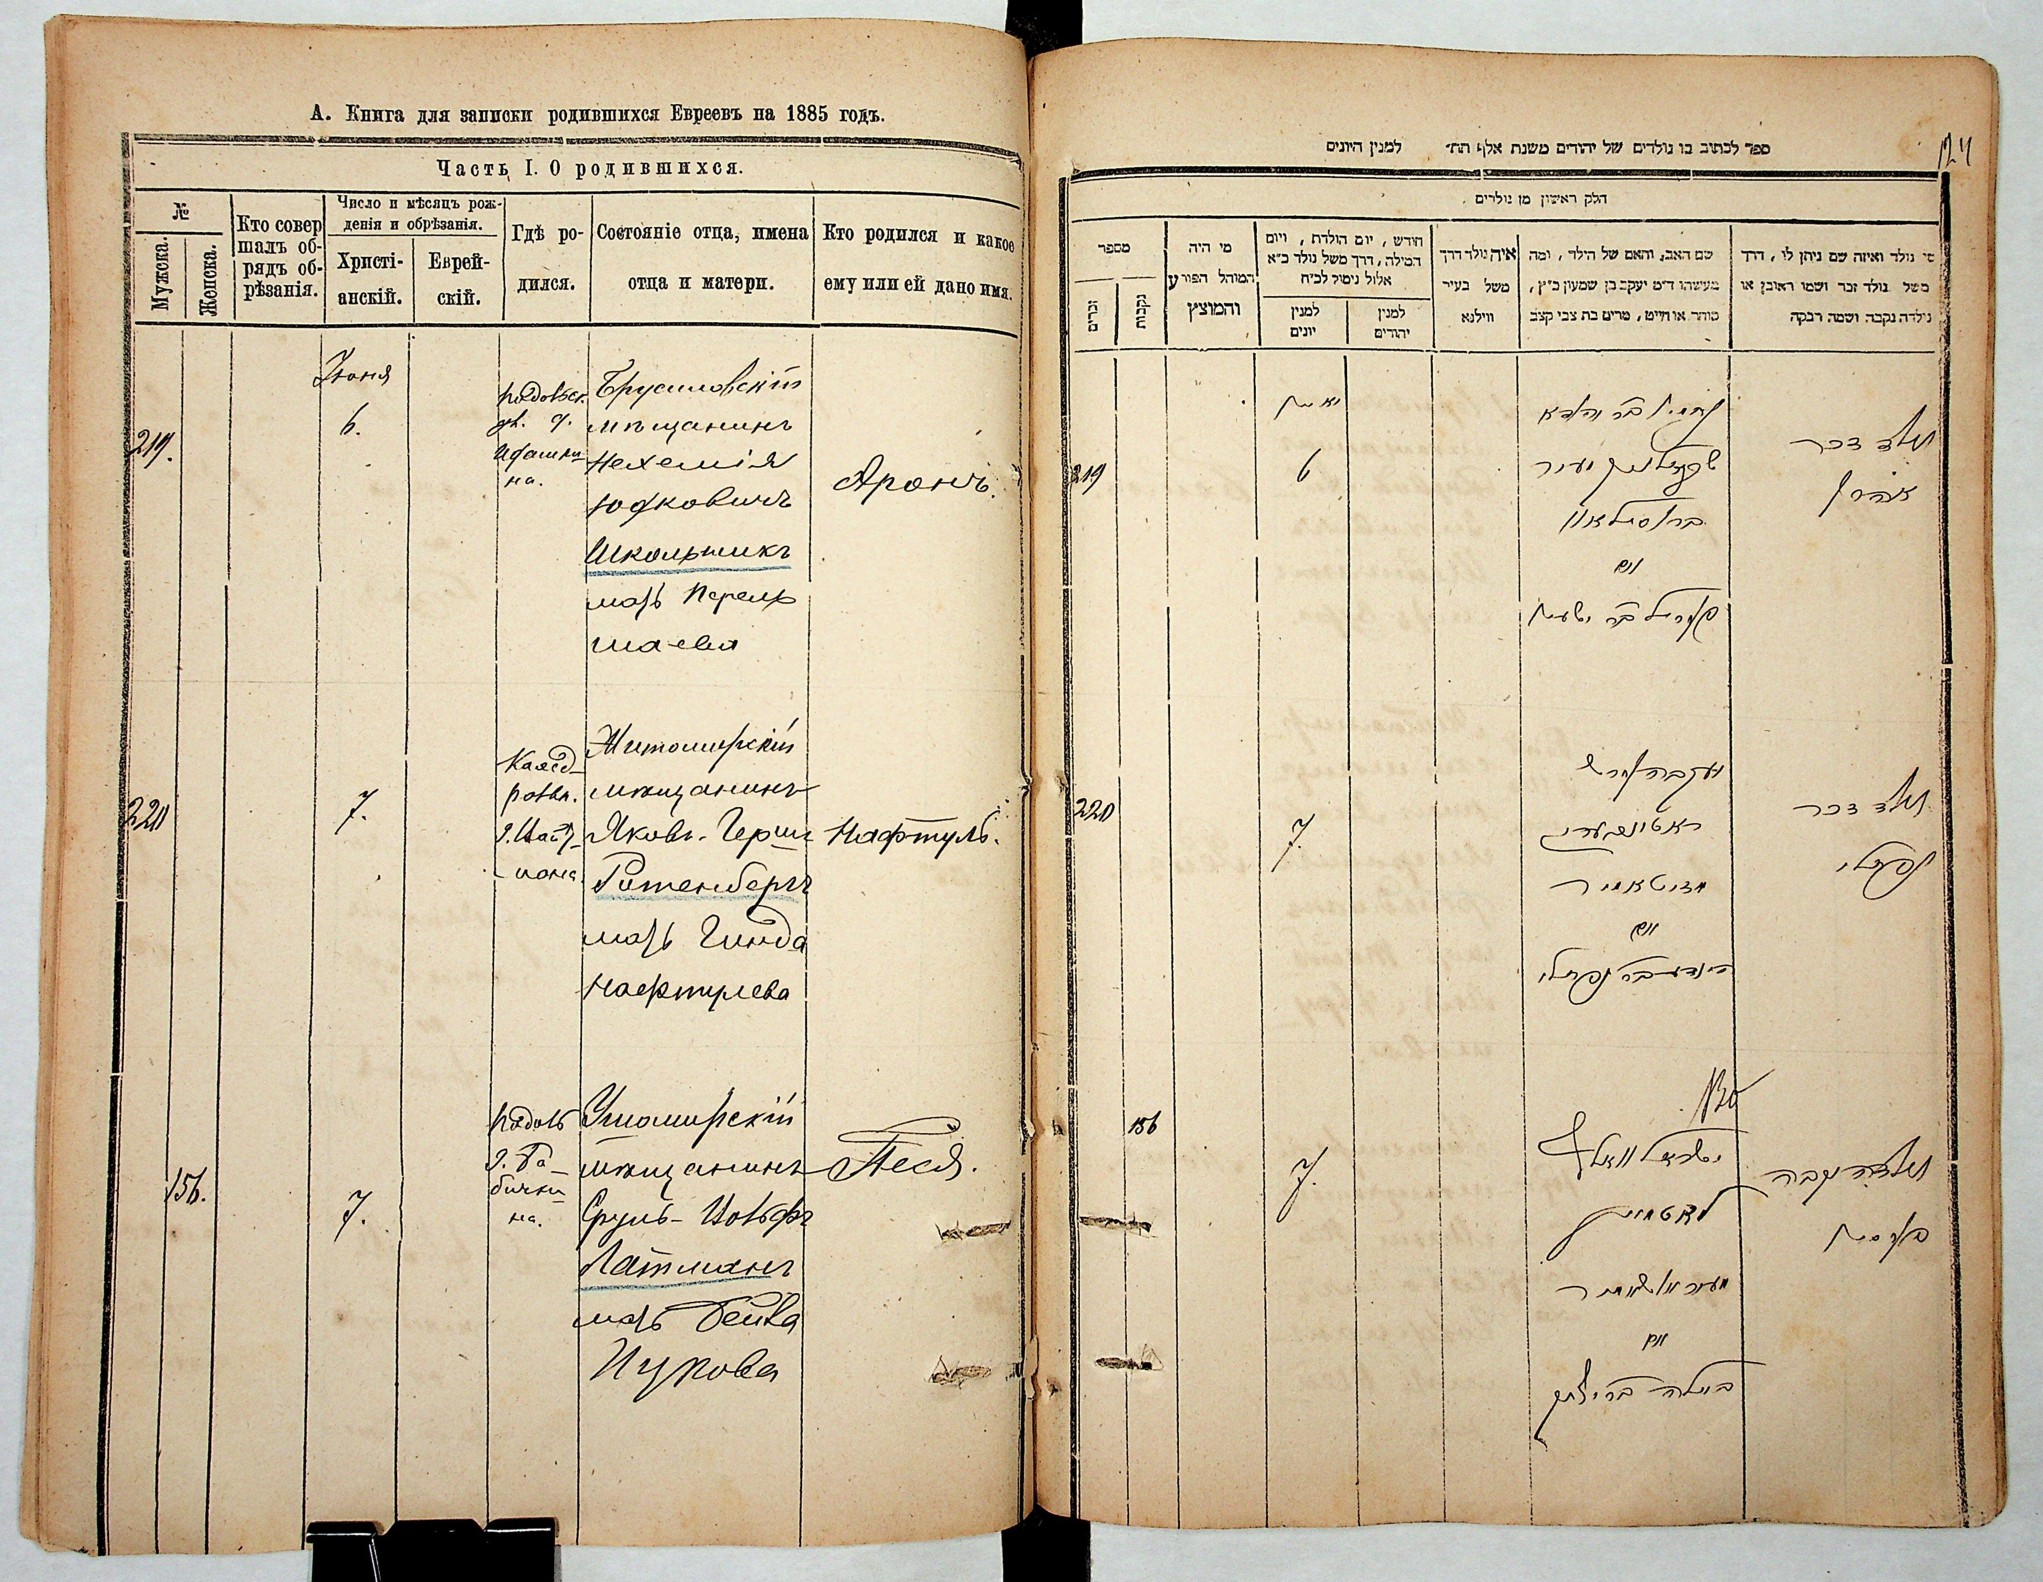 А. Книга для записки родившихся Евреевъ на 1885 годъ.
Часть I. О родившихся.
№
Мужска.
Женска.
Кто совер
шалъ об-
рядъ об-
рѣзанія.
Число и мѣсяцъ рож-
денія и обрѣзанія.
Христі-
анскій.
Еврей-
скій.
Гдѣ ро-
дился.
Состояніе отца, имена
отца и матери.
Кто родился и какое
ему или ей дано имя.
219.
Іюня
6.
Брусиловскій
мѣщанинъ
Нехемія
Юдковичъ
Школьникъ
мать Перель
Шаева
Аронъ.
220
7.
Житомирскій
мѣщанинъ
Яковъ-Герш
Ротенбергъ
мать Гинда
Нафтулева
Нафтуль.
156.
7.
Ушомирскій
мѣщанинъ
Сруль-Вольфъ
Латманъ
мать Бейла
Ицкова
Песя.
124
ספר לכתוב בו נולדים של יהודים משנת אלף תת׳ למנין היונים
חלק ראשון מן נולדים
מספר
זכרים
נקבות
מי היה
המוהל הפורע
והמוצץ
חודש, יום הולדת, ויום
המילה, דרך משל נולד כ״א
אלול ניטול לכ״ח
למנין
יונים
למנין
יהודים
איה נולד דרך
משל בעיר
ווילנא
שם האב, והאם של הילד, ומה
מעשהו ד״מ יעקב בן שמעון כ״ץ,
סוחר או חייט, מרים בת צבי קצב
מי נולד ואיזה שם ניתן לו, דרך
משל נולד זכר ושמו ראובן או
נולדה נקבה ושמה רבקה
219
6
נולד זכר
אהרן
220
7.
יעקב הירש
ראטינבערג
זיטאמיר
ואם
הינדע בר נפתלי
נולד זכר
נפתלי
156
7.
ישראל וואלף
לאטמאן
ואם
ביילה בר יצחק
נולדה נקבה
פעסיא